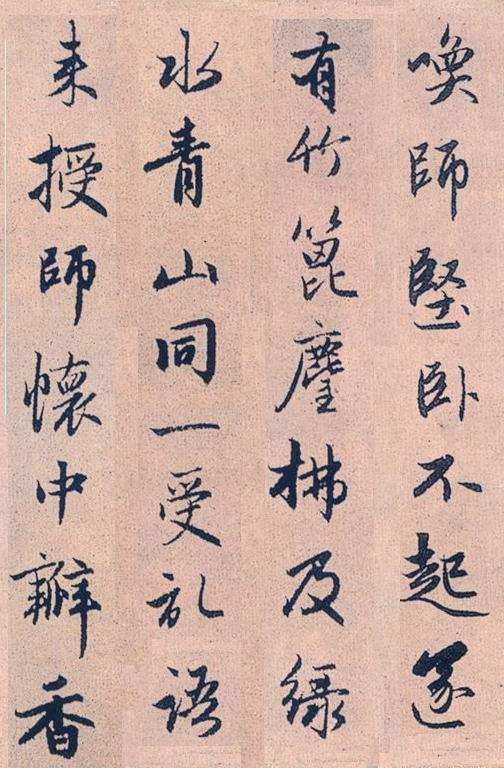 喚師堅卧不起遂
有竹篦麈拂及綠
水青山同一受乱語
来授師懷中瓣香